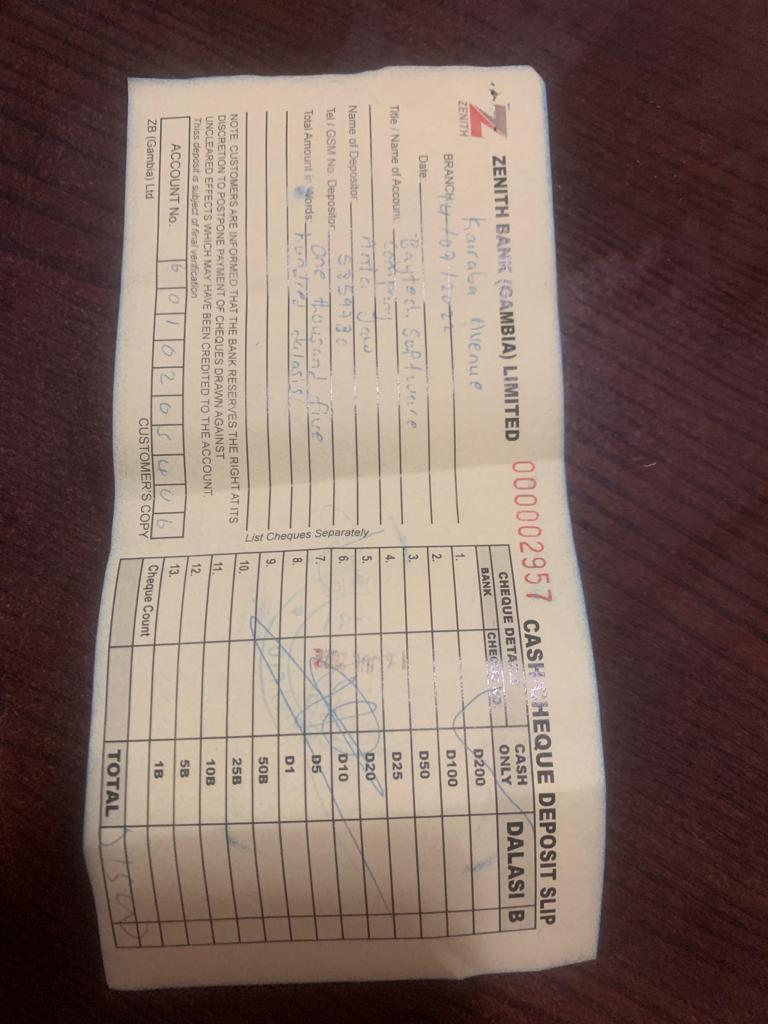 ZENITH
ZENITH BANK (GAMBIA) LIMITED
000002957
CASH/CHEQUE DEPOSIT SLIP
BRANCH Kairaba Avenue
Date 14/07/2022
Title / Name of Account Baytech Software
Company
Name of Depositor Anta Jaw
Tel / GSM No. Depositor
Total Amount in Words: One thousand five
hundred dalasis
NOTE: CUSTOMERS ARE INFORMED THAT THE BANK RESERVES THE RIGHT AT ITS
DISCRETION TO POSTPONE PAYMENT OF CHEQUES DRAWN AGAINST
UNCLEARED EFFECTS WHICH MAY HAVE BEEN CREDITED TO THE ACCOUNT.
Thiss deposit is subject of final verification
ACCOUNT No. 6 0 1 0 2 0 5 4 0 6
ZB (Gambia) Ltd
CUSTOMER'S COPY
List Cheques Separately
CHEQUE DETAILS CASH ONLY DALASI B
BANK CHEQUE NO.
1. D200
2. D100
3. D50
4. D25
5. D20
6. D10
7. D5
8. D1
9. 50B
10. 25B
11. 10B
12. 5B
13. 1B
Cheque Count TOTAL